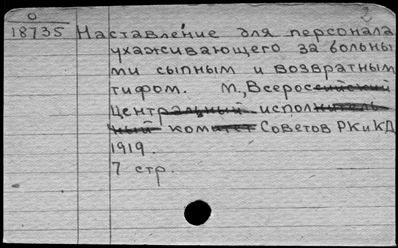 0 2
18735 Наставление для персонала
ухаживающего за больны
ми сыпным и возвратным
тифом. М., Всероссийский
центральный исполнитель
ный комитет Советов РК и КД
1919.
7 стр.